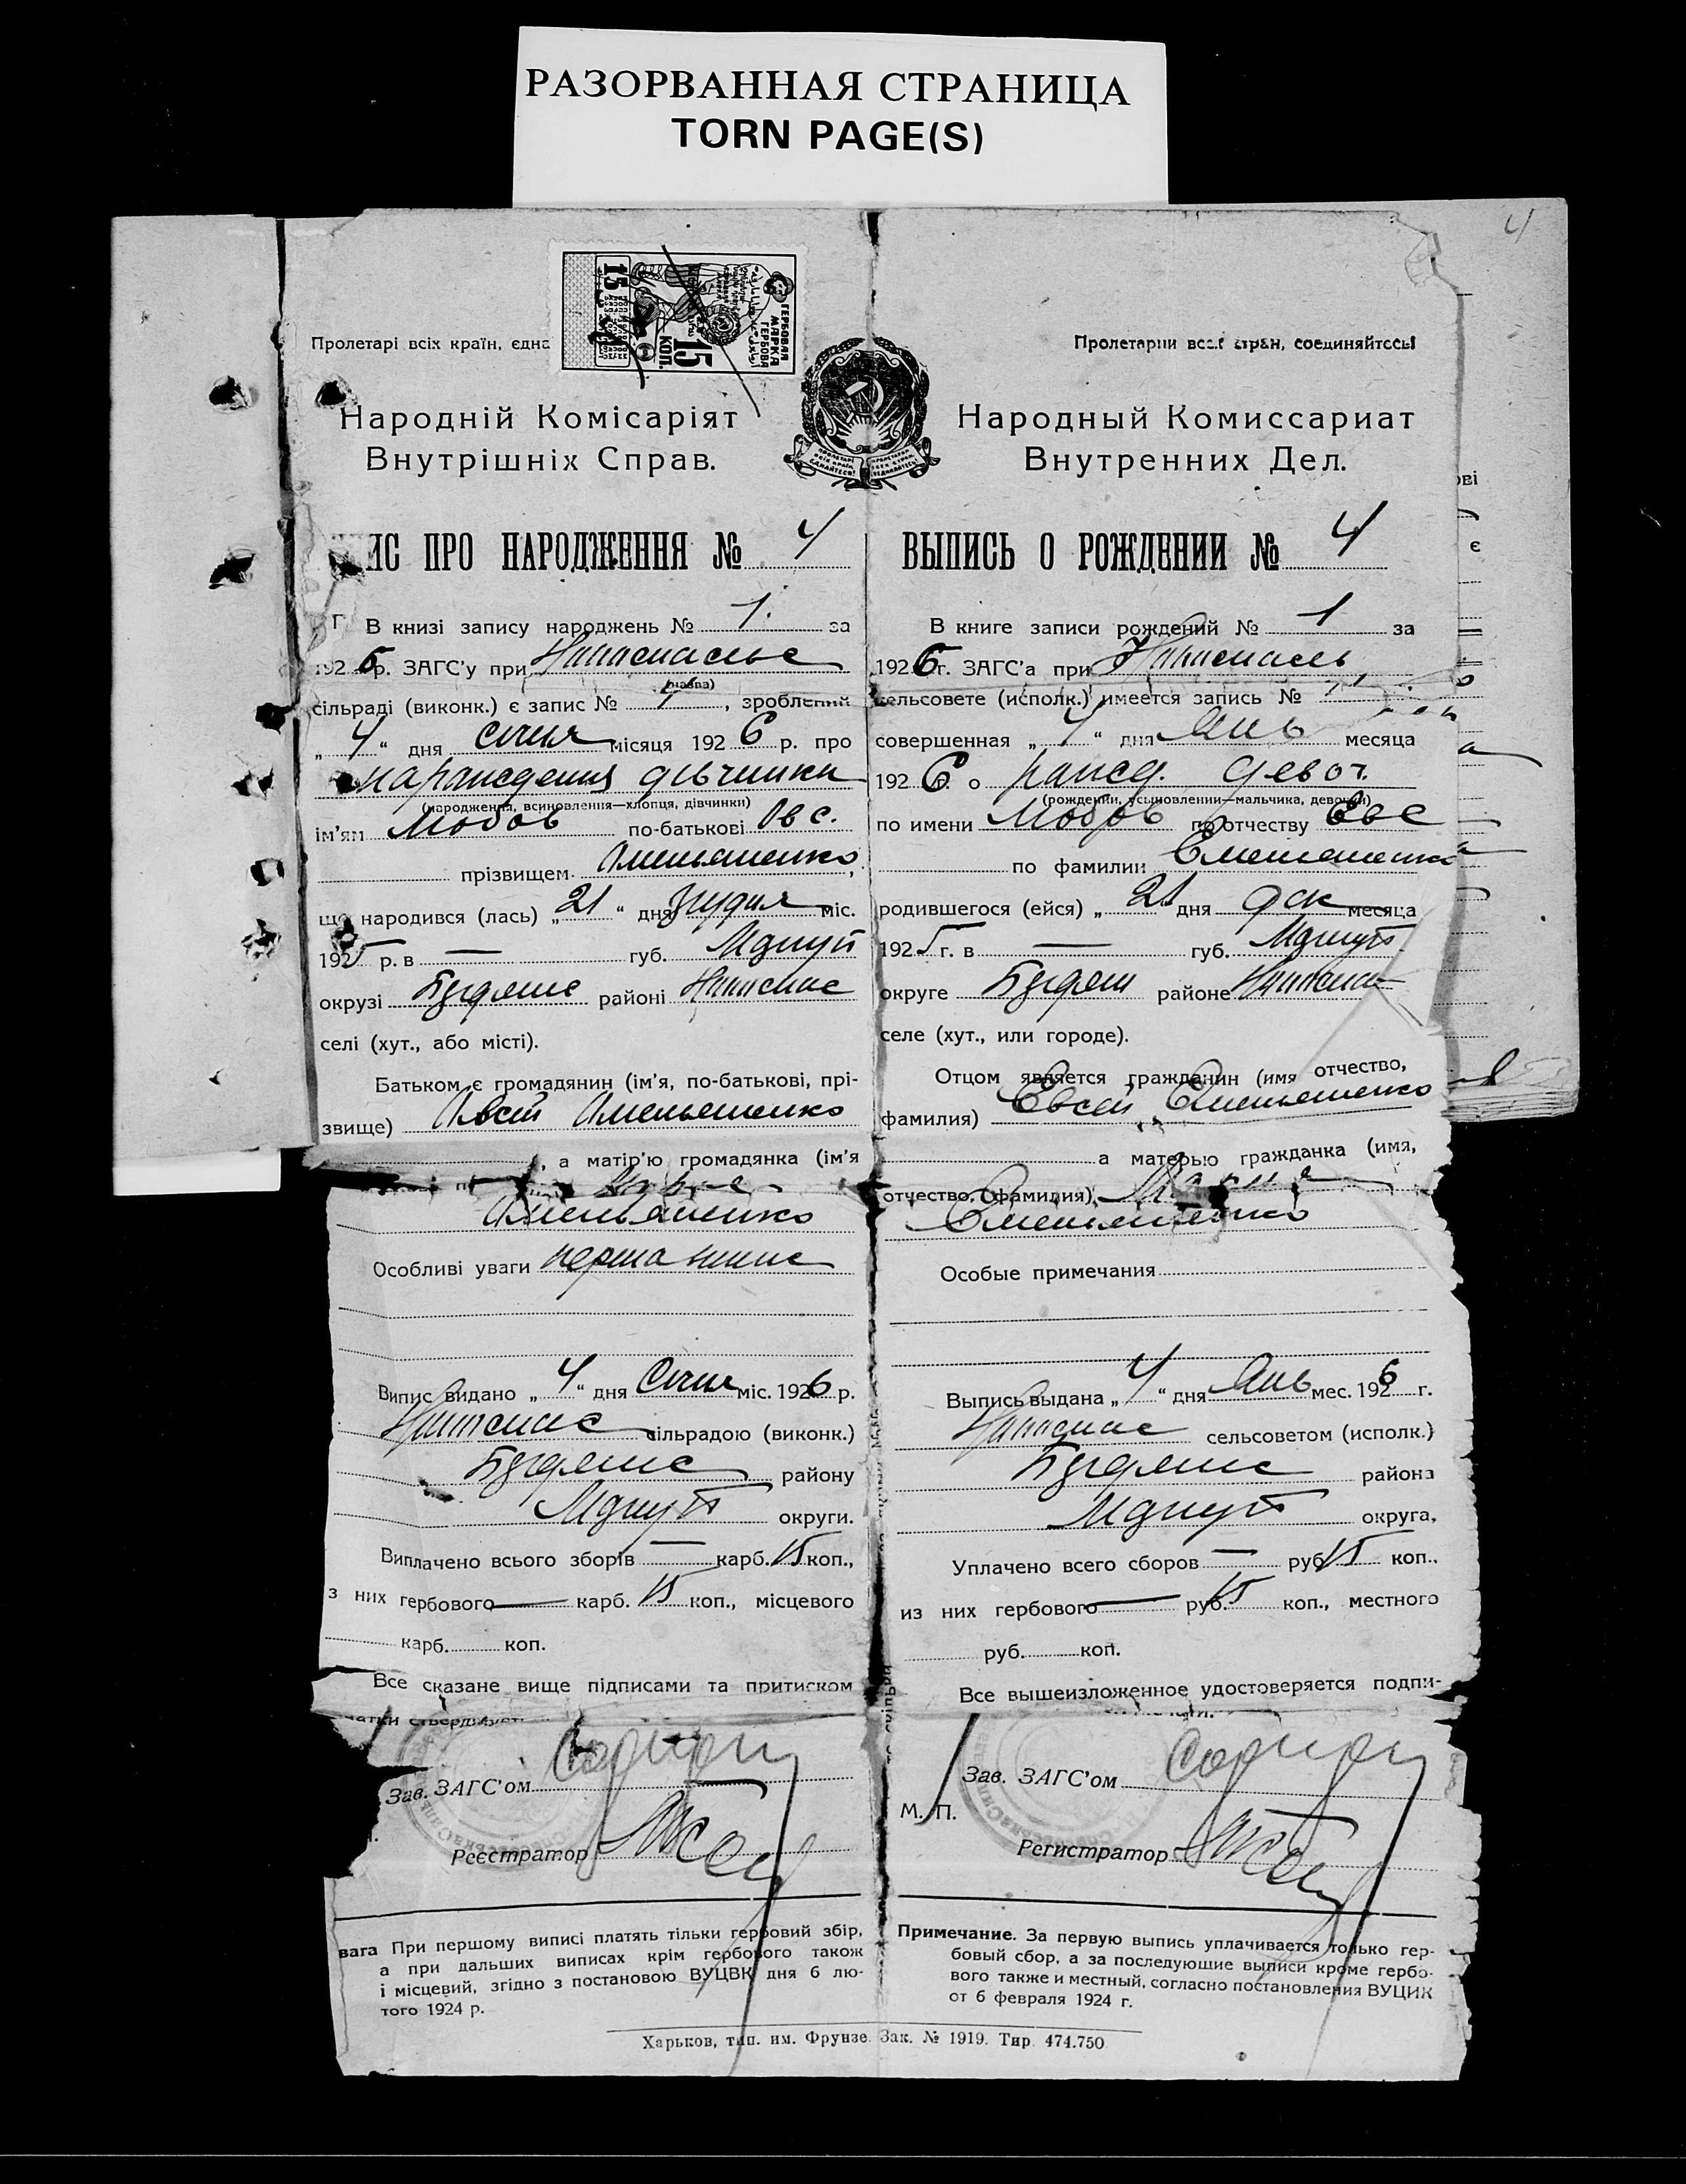 РАЗОРВАННАЯ СТРАНИЦА
TORN PAGE(S)
4
Пролетарі всіх країн, єдна
15 КОП.
ГЕРБОВАЯ МАРКА
ГЕРБОВА
Народній Комісаріят
Внутрішніх Справ.
ИС ПРО НАРОДЖЕННЯ № 4
В книзі запису народжень № 1. за
1926 р. ЗАГС'у при
(назва)
сільраді (виконк.) є запис № 1, зроблений
„4“ дня Січня місяця 1926 р. про
нарождения дівчинки
(народження, всиновлення—хлопця, дівчинки)
ім'ям Любов по-батькові Овс.
прізвищем Омельяненко,
що народився (лась) „21“ дня Грудня міс.
1925 р. в — губ.
окрузі районі
селі (хут., або місті).
Батьком є громадянин (ім'я, по-батькові, прі-
звище) Овсій Омельяненко
, а матір'ю громадянка (ім'я
Омельяненко
Особливі уваги
Випис видано „4“ дня Січня міс. 1926 р.
сільрадою (виконк.)
району
округи.
Виплачено всього зборів — карб. 15 коп.,
з них гербового — карб. 15 коп., місцевого
карб. коп.
Все сказане вище підписами та притиском
Зав. ЗАГС'ом
Реєстратор
вага При першому виписі платять тільки гербовий збір,
а при дальших виписах крім гербового також
і місцевий, згідно з постановою ВУЦВК дня 6 лю-
того 1924 р.
Пролетарии всех стран, соединяйтесь!
Народный Комиссариат
Внутренних Дел.
ВЫПИСЬ О РОЖДЕНИИ № 4
В книге записи рождений № 1 за
1926 г. ЗАГС'а при
сельсовете (исполк.) имеется запись № 1
совершенная „4“ дня Янь месяца
1926 г. о рожд. девоч.
(рождении, усыновлении—мальчика, девочки)
по имени Любовь по отчеству Евс
по фамилии Емельяненко
родившегося (ейся) „21“ дня Дек месяца
1925 г. в — губ.
округе районе
селе (хут., или городе).
Отцом является гражданин (имя отчество,
фамилия) Евсей Емельяненко
а матерью гражданка (имя,
отчество, фамилия)
Емельяненко
Особые примечания
Выпись выдана „4“ дня Янь мес. 1926 г.
сельсоветом (исполк.)
района
округа,
Уплачено всего сборов — руб. 15 коп.,
из них гербового — руб. 15 коп., местного
руб. коп.
Все вышеизложенное удостоверяется подпи-
Зав. ЗАГС'ом
М. П.
Регистратор
Примечание. За первую выпись уплачивается только гер-
бовый сбор, а за последующие выписи кроме гербо-
вого также и местный, согласно постановления ВУЦИК
от 6 февраля 1924 г.
Харьков, тип. им. Фрунзе. Зак. № 1919. Тир. 474.750